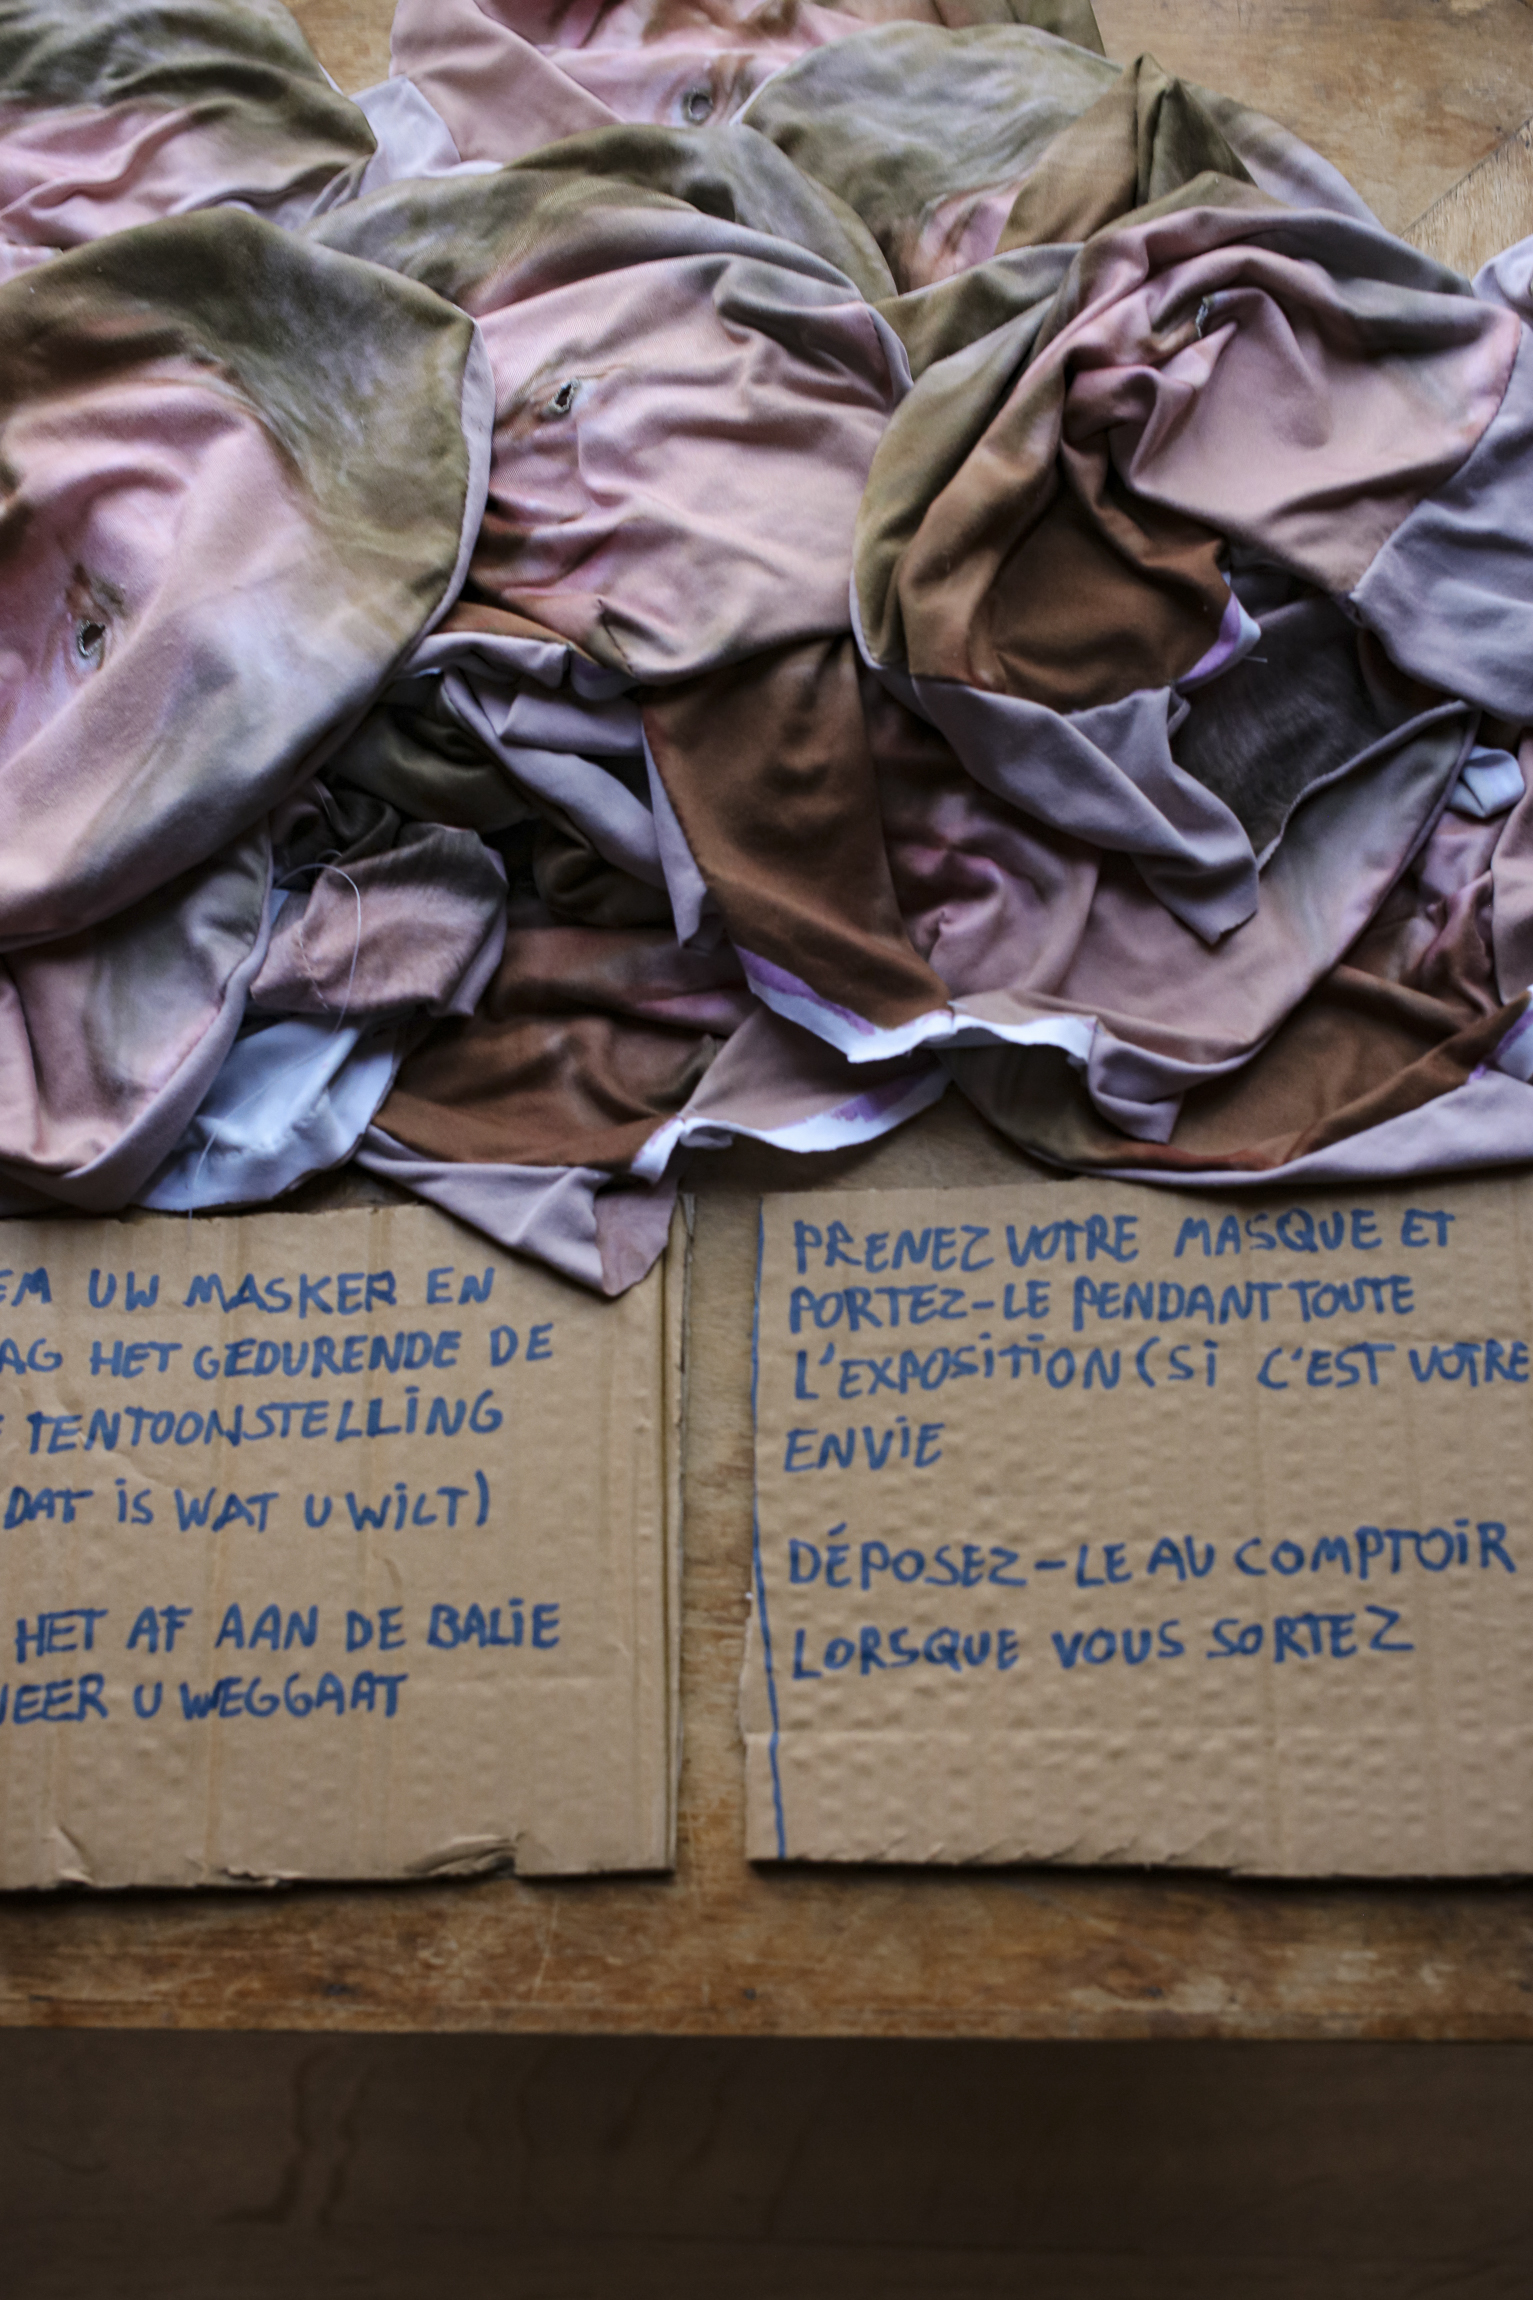 EM UW MASKER EN
AG HET GEDURENDE DE
TENTOONSTELLING
DAT iS WAT U WiLT)
HET AF AAN DE BALiE
NEER U WEGGAAT
PRENEZ VOTRE MASQUE ET
PORTEZ-LE PENDANT TOUTE
L'EXPOSiTiON (Si C'EST VOTRE
ENViE
DÉPOSEZ-LE AU COMPTOiR
LORSQUE VOUS SORTEZ